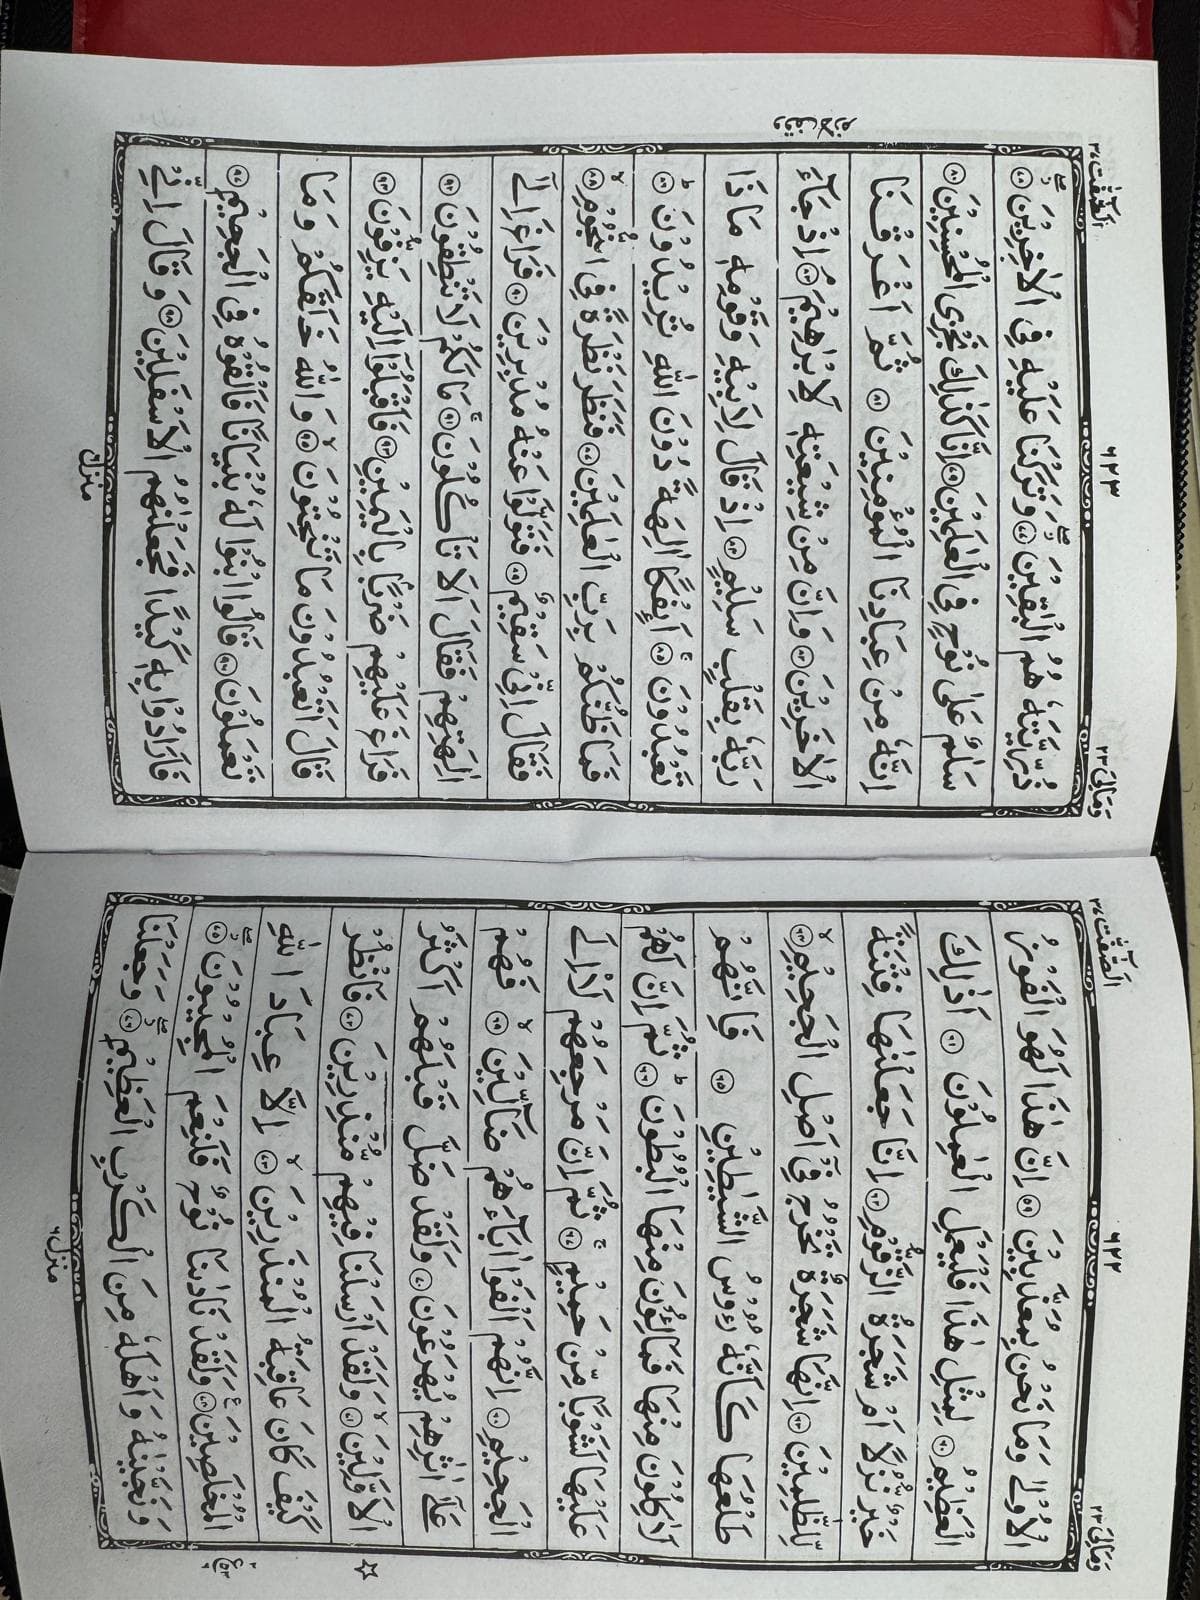 وَمَالِىَ ٢٣ ٦٢٢ الصّٰٓفّٰت ٣٧
الْاُوْلٰى وَمَا نَحْنُ بِمُعَذَّبِيْنَ ۝٥٩ اِنَّ هٰذَا لَهُوَ الْفَوْزُ
الْعَظِيْمُ ۝٦٠ لِمِثْلِ هٰذَا فَلْيَعْمَلِ الْعٰمِلُوْنَ ۝٦١ اَذٰلِكَ
خَيْرٌ نُّزُلًا اَمْ شَجَرَةُ الزَّقُّوْمِ ۝٦٢ اِنَّا جَعَلْنٰهَا فِتْنَةً
لِّلظّٰلِمِيْنَ ۝٦٣ اِنَّهَا شَجَرَةٌ تَخْرُجُ فِيْٓ اَصْلِ الْجَحِيْمِ ۙ۝٦٤
طَلْعُهَا كَاَنَّهٗ رُءُوْسُ الشَّيٰطِيْنِ ۝٦٥ فَاِنَّهُمْ
لَاٰكِلُوْنَ مِنْهَا فَمَالِـُٔوْنَ مِنْهَا الْبُطُوْنَ ؕ۝٦٦ ثُمَّ اِنَّ لَهُمْ
عَلَيْهَا لَشَوْبًا مِّنْ حَمِيْمٍ ۚ۝٦٧ ثُمَّ اِنَّ مَرْجِعَهُمْ لَا۟اِلَى
الْجَحِيْمِ ۝٦٨ اِنَّهُمْ اَلْفَوْا اٰبَآءَهُمْ ضَآلِّيْنَ ۙ۝٦٩ فَهُمْ
عَلٰٓى اٰثٰرِهِمْ يُهْرَعُوْنَ ۝٧٠ وَلَقَدْ ضَلَّ قَبْلَهُمْ اَكْثَرُ
الْاَوَّلِيْنَ ۙ۝٧١ وَلَقَدْ اَرْسَلْنَا فِيْهِمْ مُّنْذِرِيْنَ ۝٧٢ فَانْظُرْ
كَيْفَ كَانَ عَاقِبَةُ الْمُنْذَرِيْنَ ۙ۝٧٣ اِلَّا عِبَادَ اللّٰهِ
الْمُخْلَصِيْنَ ۧ۝٧٤ وَلَقَدْ نَادٰىنَا نُوْحٌ فَلَنِعْمَ الْمُجِيْبُوْنَ ۖ۝٧٥
وَنَجَّيْنٰهُ وَاَهْلَهٗ مِنَ الْكَرْبِ الْعَظِيْمِ ۖ۝٧٦ وَجَعَلْنَا
منزل ٦
وَمَالِىَ ٢٣ ٦٢٣ الصّٰٓفّٰت ٣٧
ذُرِّيَّتَهٗ هُمُ الْبٰقِيْنَ ۖ۝٧٧ وَتَرَكْنَا عَلَيْهِ فِى الْاٰخِرِيْنَ ۖ۝٧٨
سَلٰمٌ عَلٰى نُوْحٍ فِى الْعٰلَمِيْنَ ۝٧٩ اِنَّا كَذٰلِكَ نَجْزِى الْمُحْسِنِيْنَ ۝٨٠
اِنَّهٗ مِنْ عِبَادِنَا الْمُؤْمِنِيْنَ ۝٨١ ثُمَّ اَغْرَقْنَا
الْاٰخَرِيْنَ ۝٨٢ وَاِنَّ مِنْ شِيْعَتِهٖ لَاِبْرٰهِيْمَ ۘ۝٨٣ اِذْ جَآءَ
وقف لازم
رَبَّهٗ بِقَلْبٍ سَلِيْمٍ ۝٨٤ اِذْ قَالَ لِاَبِيْهِ وَقَوْمِهٖ مَاذَا
تَعْبُدُوْنَ ۚ۝٨٥ اَئِفْكًا اٰلِهَةً دُوْنَ اللّٰهِ تُرِيْدُوْنَ ؕ۝٨٦
فَمَا ظَنُّكُمْ بِرَبِّ الْعٰلَمِيْنَ ۝٨٧ فَنَظَرَ نَظْرَةً فِى النُّجُوْمِ ۙ۝٨٨
فَقَالَ اِنِّيْ سَقِيْمٌ ۝٨٩ فَتَوَلَّوْا عَنْهُ مُدْبِرِيْنَ ۝٩٠ فَرَاغَ اِلٰٓى
اٰلِهَتِهِمْ فَقَالَ اَلَا تَاْكُلُوْنَ ۚ۝٩١ مَا لَكُمْ لَا تَنْطِقُوْنَ ۝٩٢
فَرَاغَ عَلَيْهِمْ ضَرْبًا بِالْيَمِيْنِ ۝٩٣ فَاَقْبَلُوْٓا اِلَيْهِ يَزِفُّوْنَ ۝٩٤
قَالَ اَتَعْبُدُوْنَ مَا تَنْحِتُوْنَ ۙ۝٩٥ وَاللّٰهُ خَلَقَكُمْ وَمَا
تَعْمَلُوْنَ ۝٩٦ قَالُوا ابْنُوْا لَهٗ بُنْيَانًا فَاَلْقُوْهُ فِى الْجَحِيْمِ ۝٩٧
فَاَرَادُوْا بِهٖ كَيْدًا فَجَعَلْنٰهُمُ الْاَسْفَلِيْنَ ۝٩٨ وَقَالَ اِنِّيْ
منزل ٦